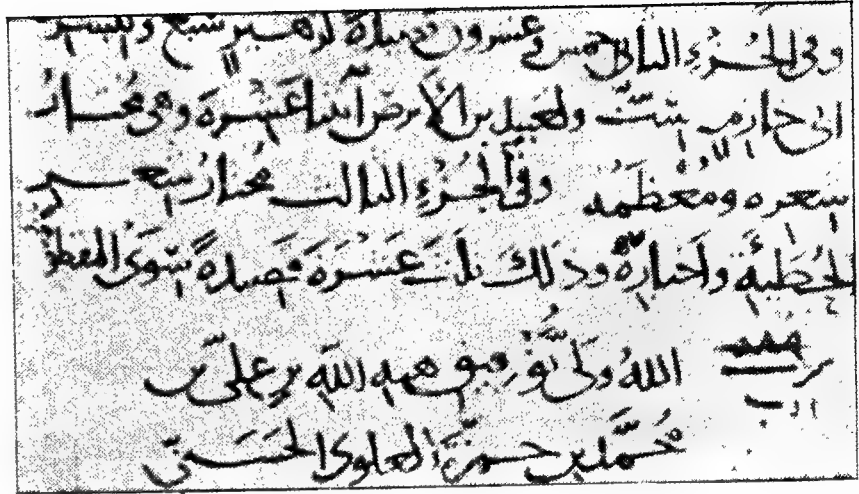 وفى الجُزءِ الثانى خمس وعشرون قصيدةً لزهير سبع وللبشر
ابن خازم ستٌّ ولعبيد بن الأبرص اثنتا عَشرة وهى مُختارُ
شعره ومُعظمُه وفى الجُزءِ الثالث مُختارُ شعر
الحُطيئة وأخبارِه وذلك ثلث عَشرة قصيدةً سِوَى المقطو
اللهُ ولىُّ توفيق هبه الله بن على بن
مُحمّد بن حمزة العلوى الحَسَنىّ